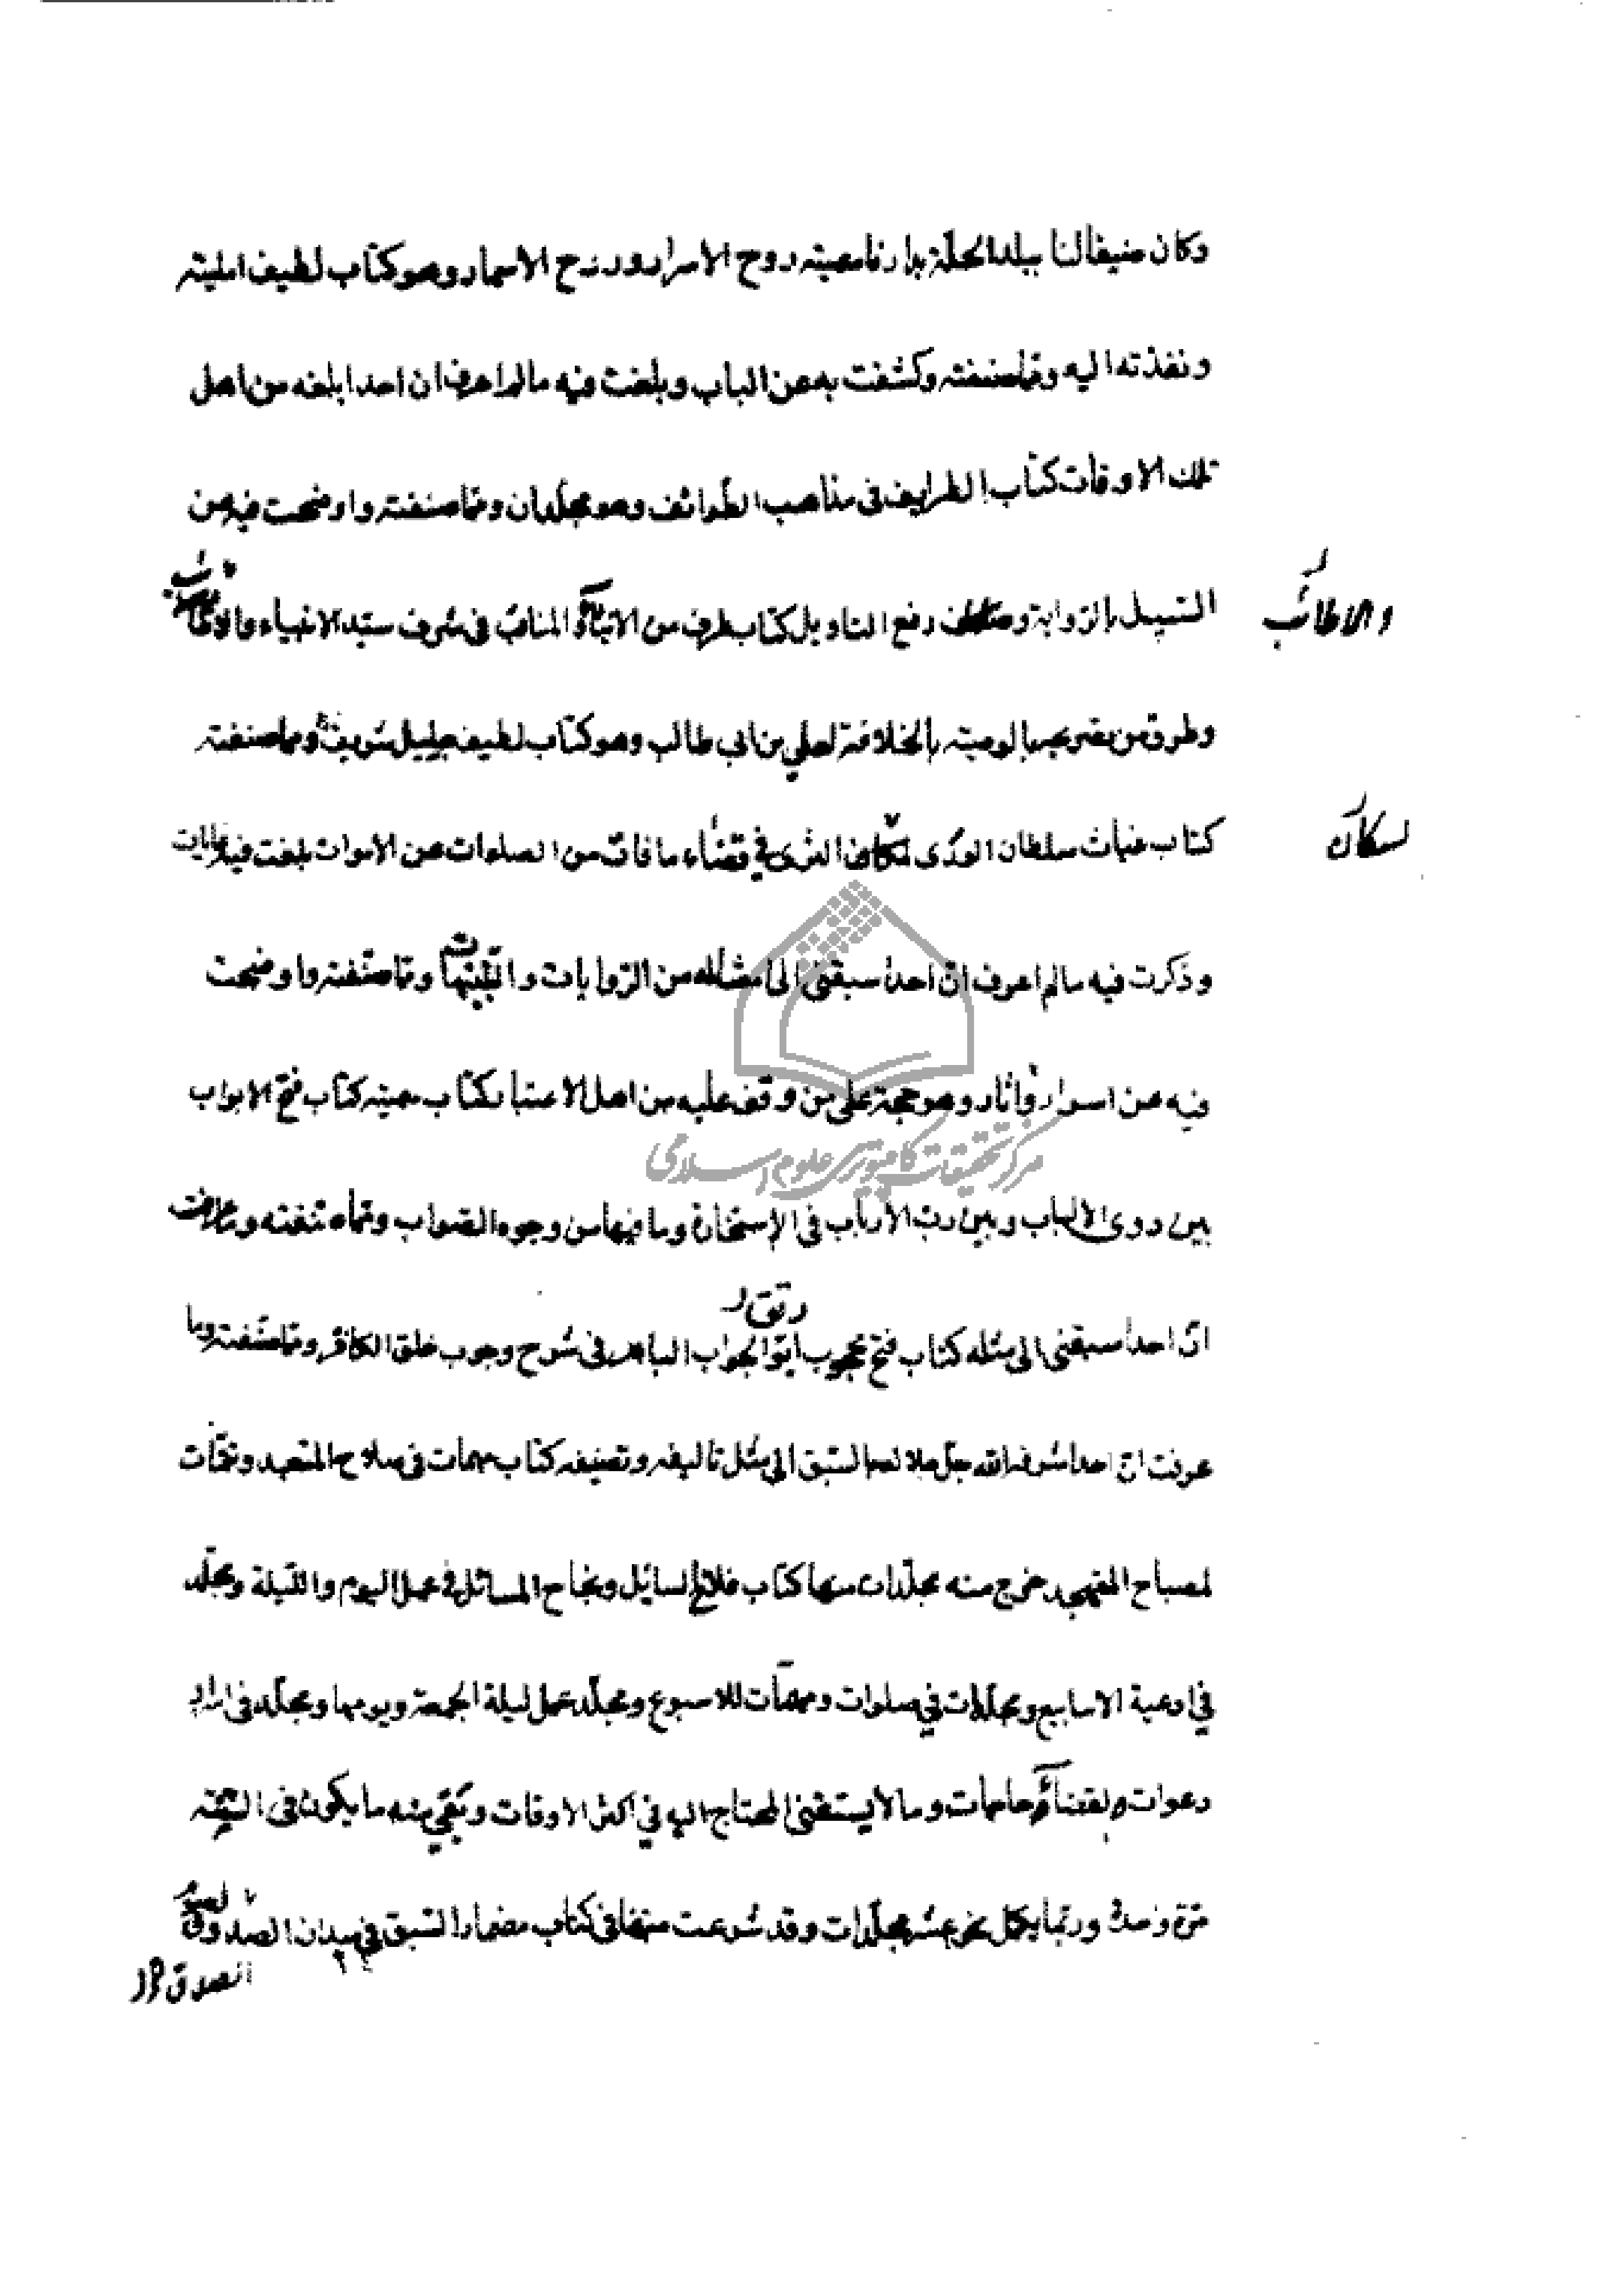 وكان ضيفا لنا ببلد الحلة بدارنا سميته روح الاسرار وروح الاسمار وهو كتاب لطيف امليته
ونفذته اليه ومما صنفته وكشفت به عن الباب وبلغت فيه مالم اعرف ان احدا بلغه من اهل
تلك الاوقات كتاب الطرايف في مذاهب الطوائف وهو مجلدان ومما صنفته واوضحت فيه عن
السبيل بالرواية و رفع التاويل كتاب طرف من الانباء والمناقب في شرف سيد الانبياء والاوصياء
والاطائب
وطرق من تصريحه بالوصية بالخلافة لعلي بن ابي طالب وهو كتاب لطيف جليل شريف ومما صنفته
كتاب غياث سلطان الورى لسكان الثرى في قضاء ما فات من الصلوات عن الاموات بلغت فيه غايات
لسكان
وذكرت فيه مالم اعرف ان احدا سبقني الى امثاله من الروايات و ومما صنفته واوضحت
فيه عن اسرار واثار وهو حجة على من وقف عليه من اهل الاعتبار كتاب سميته كتاب فتح الابواب
بين ذوى الالباب وبين رب الارباب في الاستخارة وما فيها من وجوه الصواب ومما صنفته وما عرفت
ان احدا سبقني الى مثله كتاب فتح محجوب الجواب الباهر في شرح وجوب خلق الكافر ومما صنفته وما
عرفت ان احدا شرفه الله جل جلاله بالسبق الى مثل تاليفه وتصنيفه كتاب مهمات في صلاح المتعبد وتتمات
لمصباح المتهجد خرج منه مجلدات منها كتاب فلاح السائل ونجاح المسائل في عمل اليوم والليلة ومجلد
في ادعية الاسابيع ومجلدات في صلوات ومهمات للاسبوع ومجلد عمل ليلة الجمعة ويومها ومجلد في اسرار
دعوات ولقضاء حاجات وما لا يستغنى المحتاج اليه في اكثر الاوقات وبقي منه ما يكون في السنة
مرة واحدة وربما يكمل نحو عشر مجلدات وقد شرعت منها في كتاب مضمار السبق في ميدان الصدق